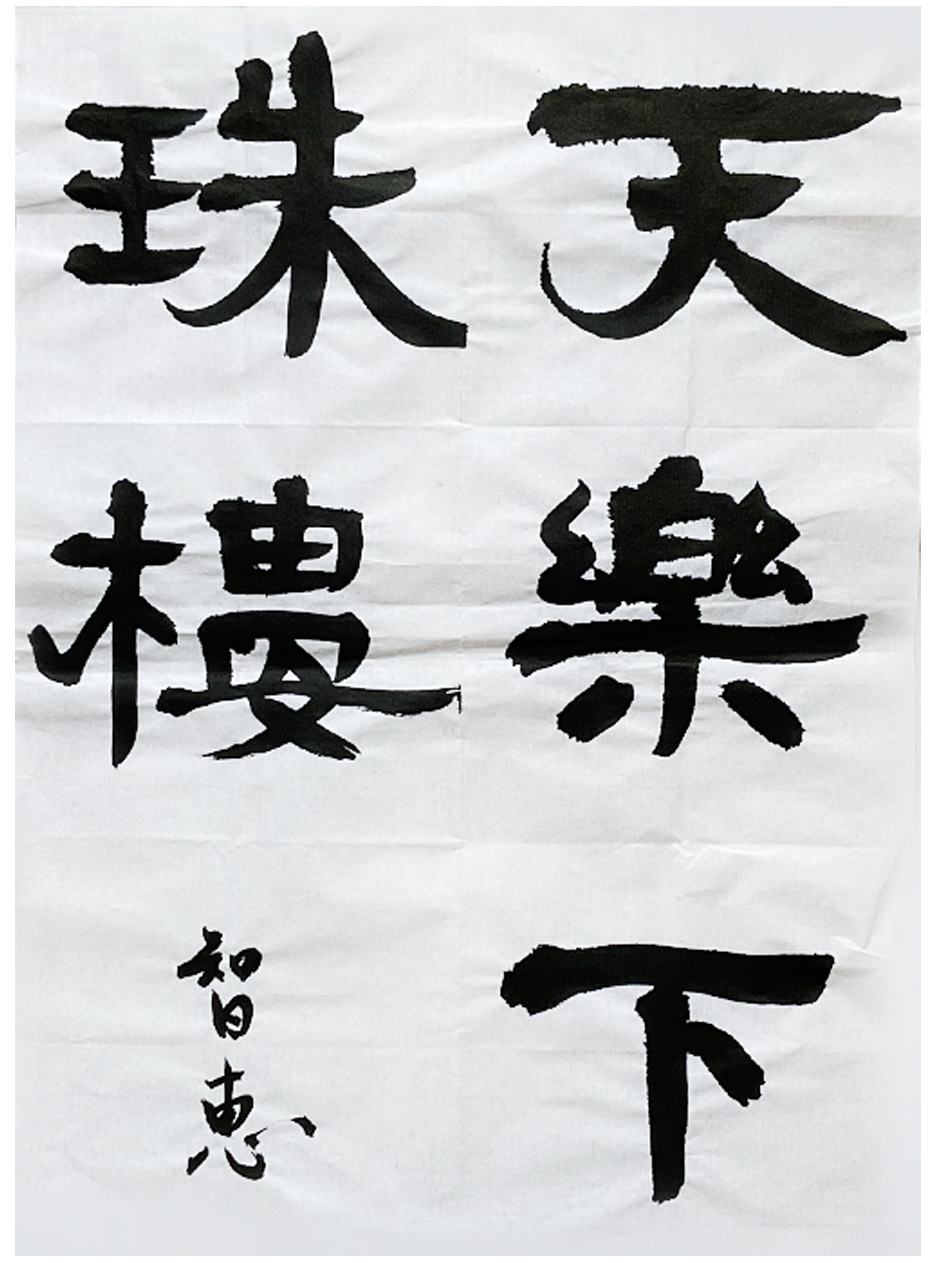 天樂下
珠樓
智恵